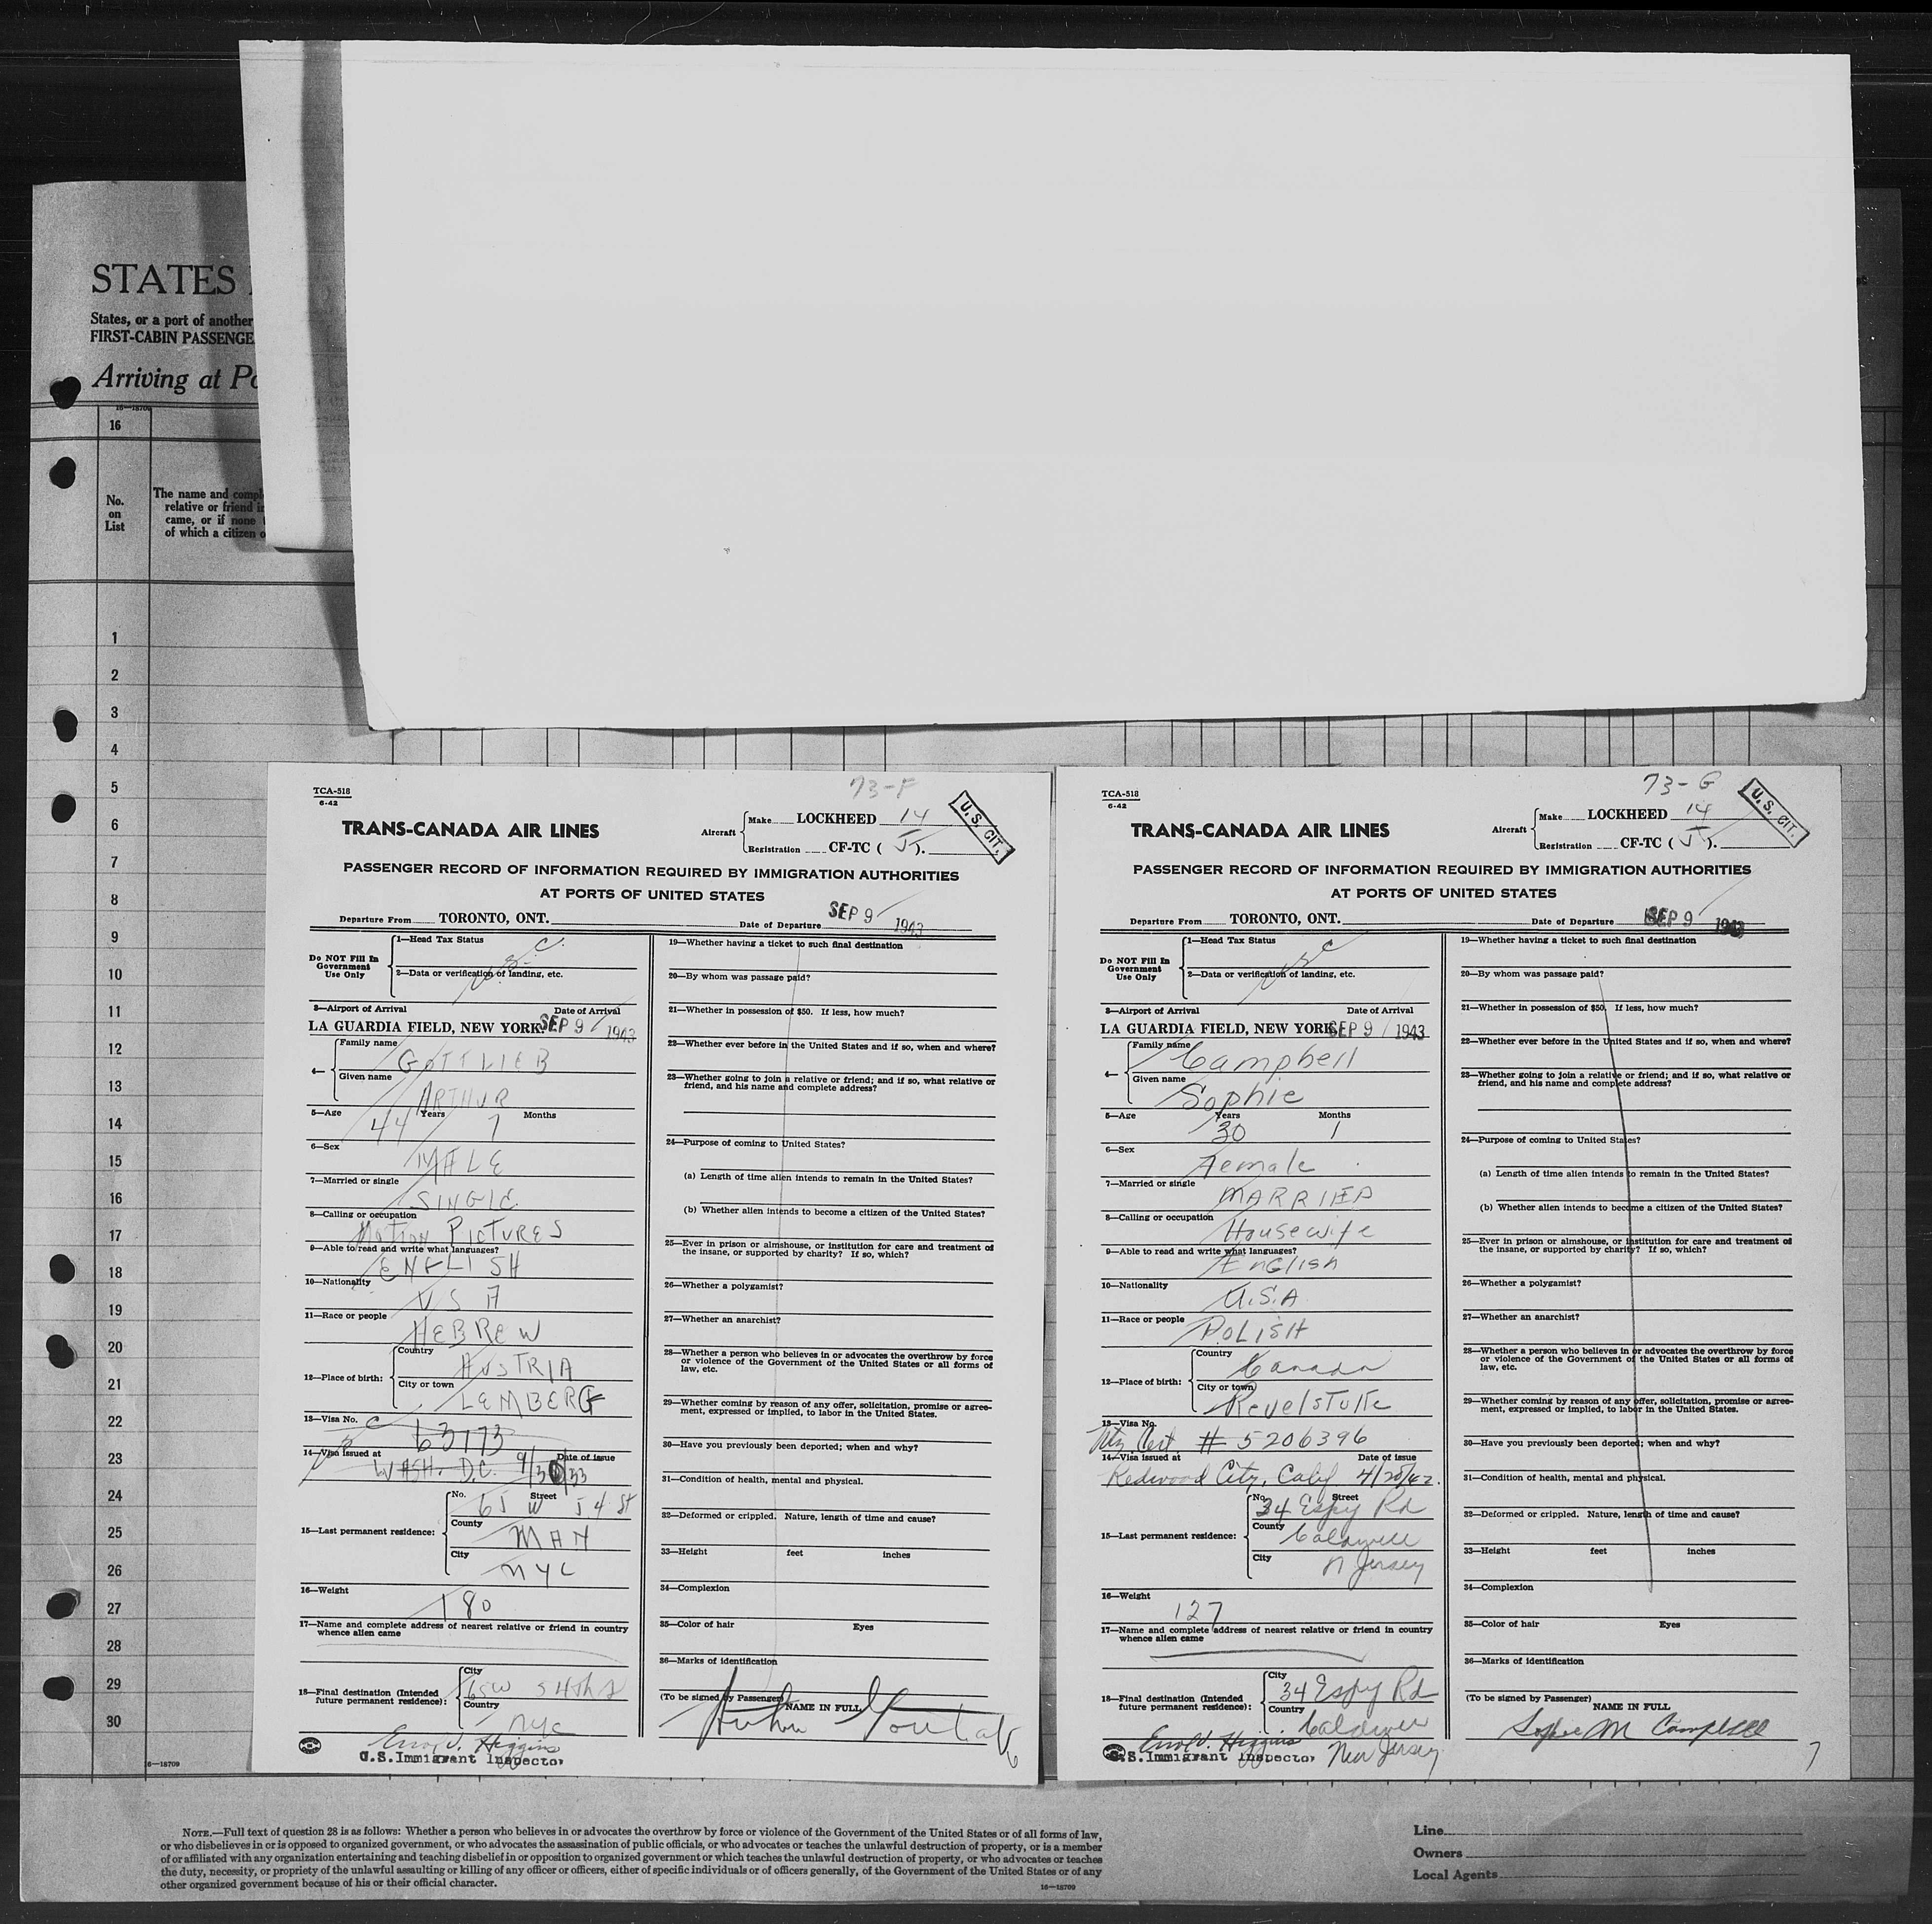 STATES
States, or a port of another
FIRST-CABIN PASSENGE
Arriving at Po
16—18709
16
No.
on
List
The name and compl
relative or friend in
came, or if none
of which a citizen o
1
2
3
4
5
6
7
8
9
10
11
12
13
14
15
16
17
18
19
20
21
22
23
24
25
26
27
28
29
30
16—18709
73-F
TCA-518
6-42
TRANS-CANADA AIR LINES
Aircraft
Make LOCKHEED 14
Registration CF-TC ( J ).
U. S. CIT.
PASSENGER RECORD OF INFORMATION REQUIRED BY IMMIGRATION AUTHORITIES
AT PORTS OF UNITED STATES
Departure From TORONTO, ONT. Date of Departure SEP 9 1943
Do NOT Fill In
Government
Use Only
1—Head Tax Status
2—Data or verification of landing, etc.
3—Airport of Arrival Date of Arrival
LA GUARDIA FIELD, NEW YORK. SEP 9 1943
4—
Family name
GOTTLIEB
Given name
ARTHUR
5—Age Years Months
44 7
6—Sex
MALE
7—Married or single
SINGLE
8—Calling or occupation
MOTION PICTURES
9—Able to read and write what languages?
ENGLISH
10—Nationality
USA
11—Race or people
HEBREW
12—Place of birth:
Country
AUSTRIA
City or town
LEMBERG
13—Visa No.
63173
14—Visa issued at Date of issue
WASH. D.C. 9/30/33
15—Last permanent residence:
No. Street
65 W 54 St
County
MAN
City
NYC
16—Weight
180
17—Name and complete address of nearest relative or friend in country
whence alien came
18—Final destination (Intended
future permanent residence):
City
65W 54th S
Country
NYC
Errol J. Higgins
U.S. Immigrant Inspector
19—Whether having a ticket to such final destination
20—By whom was passage paid?
21—Whether in possession of $50. If less, how much?
22—Whether ever before in the United States and if so, when and where?
23—Whether going to join a relative or friend; and if so, what relative or
friend, and his name and complete address?
24—Purpose of coming to United States?
(a) Length of time alien intends to remain in the United States?
(b) Whether alien intends to become a citizen of the United States?
25—Ever in prison or almshouse, or institution for care and treatment of
the insane, or supported by charity? If so, which?
26—Whether a polygamist?
27—Whether an anarchist?
28—Whether a person who believes in or advocates the overthrow by force
or violence of the Government of the United States or all forms of
law, etc.
29—Whether coming by reason of any offer, solicitation, promise or agree-
ment, expressed or implied, to labor in the United States.
30—Have you previously been deported; when and why?
31—Condition of health, mental and physical.
32—Deformed or crippled. Nature, length of time and cause?
33—Height feet inches
34—Complexion
35—Color of hair Eyes
36—Marks of identification
(To be signed by Passenger) NAME IN FULL
Arthur Gottlieb
6
73-G
TCA-518
6-42
TRANS-CANADA AIR LINES
Aircraft
Make LOCKHEED 14
Registration CF-TC ( J ).
U. S. CIT.
PASSENGER RECORD OF INFORMATION REQUIRED BY IMMIGRATION AUTHORITIES
AT PORTS OF UNITED STATES
Departure From TORONTO, ONT. Date of Departure SEP 9 1943
Do NOT Fill In
Government
Use Only
1—Head Tax Status
2—Data or verification of landing, etc.
3—Airport of Arrival Date of Arrival
LA GUARDIA FIELD, NEW YORK. SEP 9 1943
4—
Family name
Campbell
Given name
Sophie
5—Age Years Months
30 1
6—Sex
Female
7—Married or single
MARRIED
8—Calling or occupation
Housewife
9—Able to read and write what languages?
English
10—Nationality
U.S.A
11—Race or people
POLISH
12—Place of birth:
Country
Canada
City or town
Revelstoke
13—Visa No.
Ntz Cert. # 5206396
14—Visa issued at Date of issue
Redwood City, Calif 4/20/42.
15—Last permanent residence:
No. Street
34 Espy Rd
County
Caldwell
City
N Jersey
16—Weight
127
17—Name and complete address of nearest relative or friend in country
whence alien came
18—Final destination (Intended
future permanent residence):
City
34 Espy Rd
Country
Caldwell
New Jersey
Errol J. Higgins
U.S. Immigrant Inspector
19—Whether having a ticket to such final destination
20—By whom was passage paid?
21—Whether in possession of $50. If less, how much?
22—Whether ever before in the United States and if so, when and where?
23—Whether going to join a relative or friend; and if so, what relative or
friend, and his name and complete address?
24—Purpose of coming to United States?
(a) Length of time alien intends to remain in the United States?
(b) Whether alien intends to become a citizen of the United States?
25—Ever in prison or almshouse, or institution for care and treatment of
the insane, or supported by charity? If so, which?
26—Whether a polygamist?
27—Whether an anarchist?
28—Whether a person who believes in or advocates the overthrow by force
or violence of the Government of the United States or all forms of
law, etc.
29—Whether coming by reason of any offer, solicitation, promise or agree-
ment, expressed or implied, to labor in the United States.
30—Have you previously been deported; when and why?
31—Condition of health, mental and physical.
32—Deformed or crippled. Nature, length of time and cause?
33—Height feet inches
34—Complexion
35—Color of hair Eyes
36—Marks of identification
(To be signed by Passenger) NAME IN FULL
Sophie M Campbell
7
NOTE.—Full text of question 28 is as follows: Whether a person who believes in or advocates the overthrow by force or violence of the Government of the United States or of all forms of law,
or who disbelieves in or is opposed to organized government, or who advocates the assassination of public officials, or who advocates or teaches the unlawful destruction of property, or is a member
of or affiliated with any organization entertaining and teaching disbelief in or opposition to organized government or which teaches the unlawful destruction of property, or who advocates or teaches
the duty, necessity, or propriety of the unlawful assaulting or killing of any officer or officers, either of specific individuals or of officers generally, of the Government of the United States or of any
other organized government because of his or their official character.
16—18709
Line
Owners
Local Agents